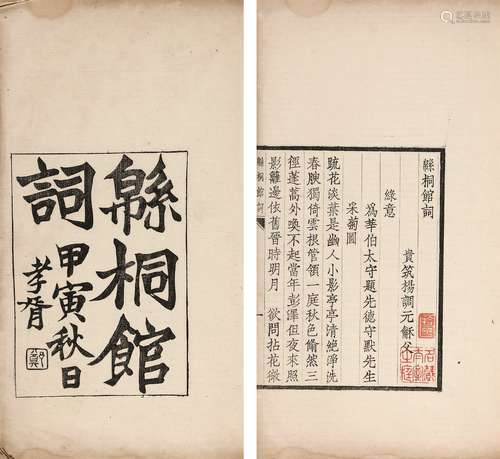 緜桐館
詞
甲寅秋日
孝胥
緜桐館詞
貴筑楊調元龢父
綠意
為華伯太守題先德守默先生
采菊圖
疏花淡葉是幽人小影亭亭清絶淨洗
春腴獨倚雲根管領一庭秋色翛然三
徑蓬蒿外喚不起當年彭澤但夜來照
影籬邊依舊晉時明月 欲問拈花微
緜桐館詞
一